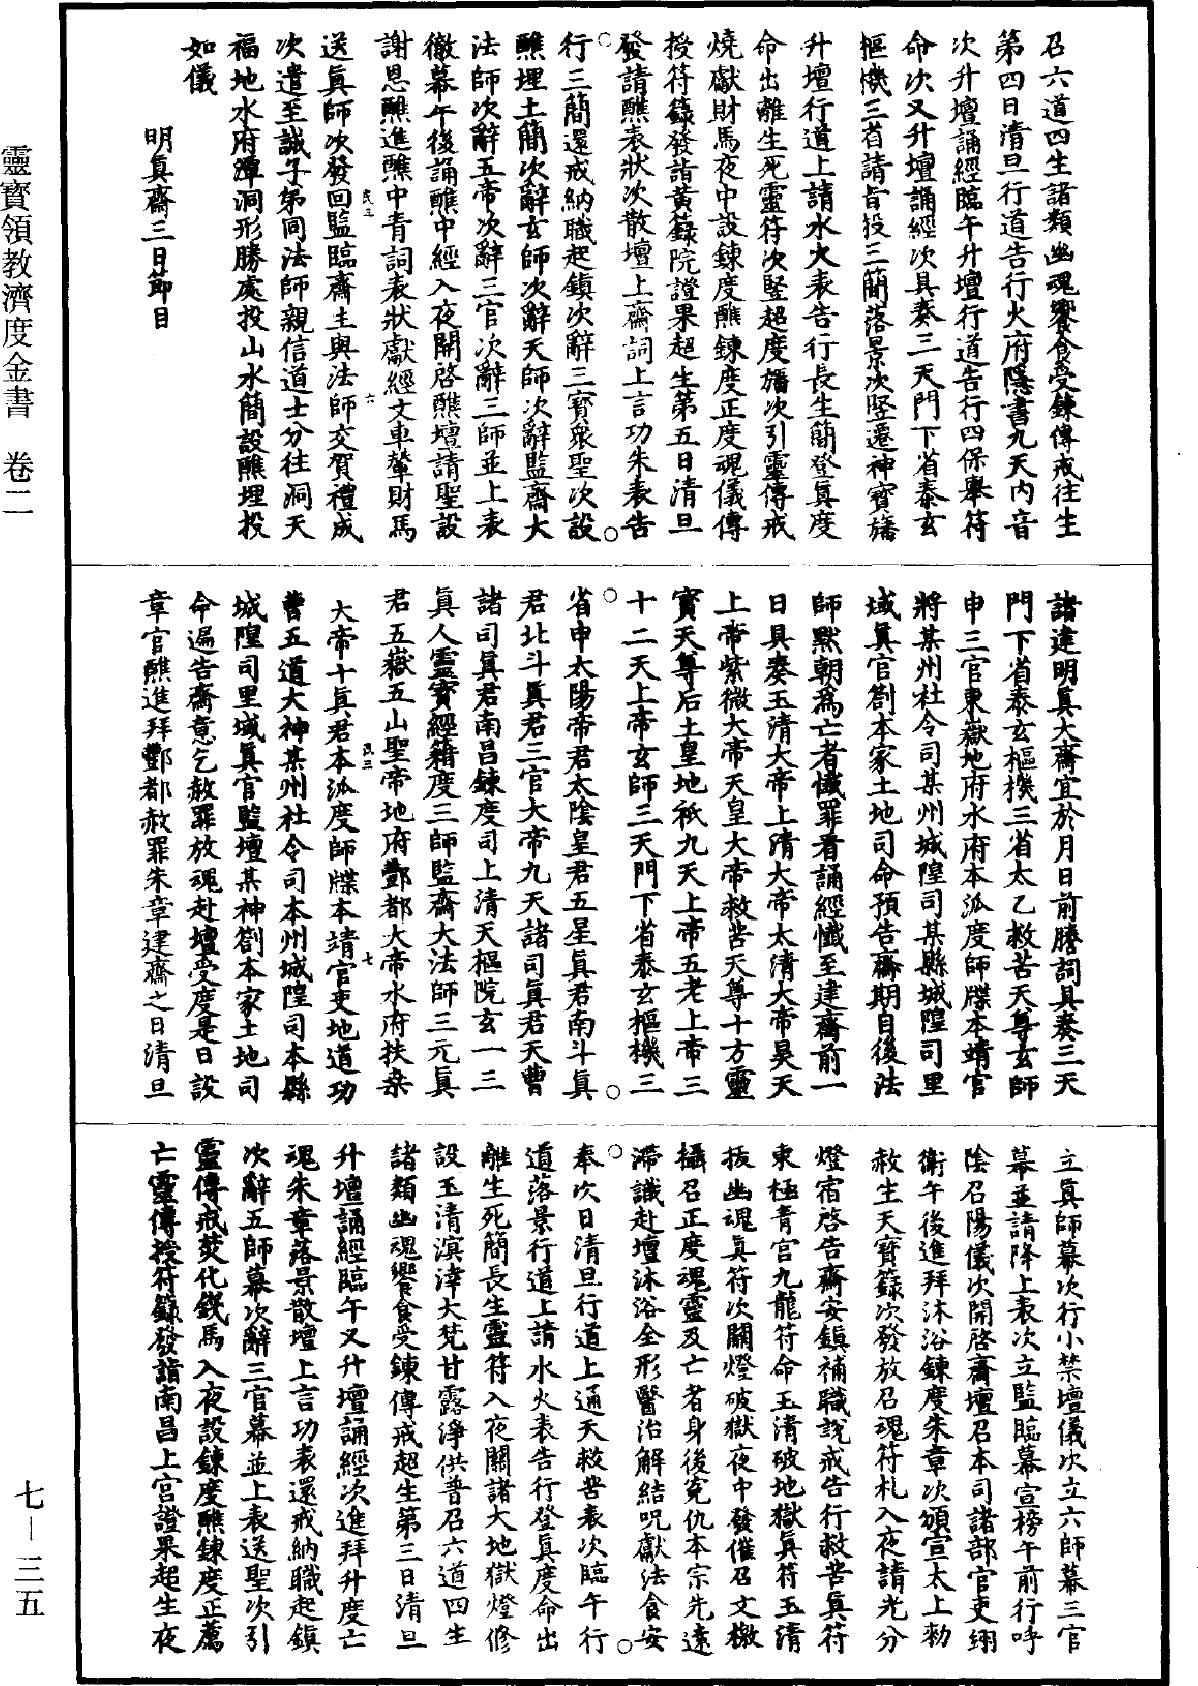 召六道四生諸類幽魂饗食受鍊傳戒往生
第四日清旦行道告行火府隱書九天内音
次升壇誦經臨午升壇行道告行四保舉符
命次又升壇誦經次具奏三天門下省泰玄
樞機三省請旨投三簡落景次竪遷神寶旛
升壇行道上請水火表告行長生簡登眞度
命出離生死靈符次竪超度旛次引靈傳戒
燒獻財馬夜中設鍊度醮鍊度正度魂儀傳
授符籙發詣黃籙院證果超生第五日清旦
發請醮表狀次散壇上齋詞上言功朱表告
行三簡還戒納職起鎮次辭三寶衆聖次設
醮埋土簡次辭玄師次辭天師次辭監齋大
法師次辭五帝次辭三官次辭三師並上表
徹幕午後誦醮中經入夜開啓醮壇請聖設
謝恩醮進醮中青詞表狀獻經文車輦財馬
送眞師次發回監臨齋主與法師交賀禮成
次遣至誠子弟同法師親信道士分往洞天
福地水府潭洞形勝處投山水簡設醮埋投
如儀
明眞齋三日節目
諸建明眞大齋宜於月日前謄詞具奏三天
門下省泰玄樞機三省太乙救苦天尊玄師
申三官東嶽地府水府本派度師牒本靖官
將某州社令司某州城隍司某縣城隍司里
域眞官劄本家土地司命預告齋期自後法
師默朝爲亡者懺罪看誦經懺至建齋前一
日具奏玉清大帝上清大帝太清大帝昊天
上帝紫微大帝天皇大帝救苦天尊十方靈
寶天尊后土皇地祇九天上帝五老上帝三
十二天上帝玄師三天門下省泰玄樞機三
省申太陽帝君太陰皇君五星眞君南斗眞
君北斗眞君三官大帝九天諸司眞君天曹
諸司眞君南昌鍊度司上清天樞院玄一三
眞人靈寶經籍度三師監齋大法師三元眞
君五嶽五山聖帝地府酆都大帝水府扶桑
大帝十眞君本派度師牒本靖官吏地道功
曹五道大神某州社令司本州城隍司本縣
城隍司里域眞官監壇某神劄本家土地司
命遍告齋意乞赦罪放魂赴壇受度是日設
章官醮進拜酆都赦罪朱章建齋之日清旦
立眞師幕次行小禁壇儀次立六師幕三官
幕並請降上表次立監臨幕宣榜午前行呼
陰召陽儀次開啓齋壇召本司諸部官吏翊
衛午後進拜沐浴鍊度朱章次頒宣太上勅
赦生天寶籙次發放召魂符札入夜請光分
燈宿啓告齋安鎮補職說戒告行救苦眞符
東極青宫九龍符命玉清破地獄眞符玉清
拔幽魂眞符次關燈破獄夜中發催召文檄
攝召正度魂靈及亡者身後寃仇本宗先遠
滯識赴壇沐浴全形醫治解結呪獻法食安
奉次日清旦行道上通天救苦表次臨午行
道落景行道上請水火表告行登眞度命出
離生死簡長生靈符入夜關諸大地獄燈修
設玉清溟涬大梵甘露淨供普召六道四生
諸類幽魂饗食受鍊傳戒超生第三日清旦
升壇誦經臨午又升壇誦經次進拜升度亡
魂朱章落景散壇上言功表還戒納職起鎮
次辭五師幕次辭三官幕並上表送聖次引
靈傳戒焚化錢馬入夜設鍊度醮鍊度正薦
亡靈傳授符籙發詣南昌上宫證果超生夜
靈寶領教濟度金書 卷二
七—三五